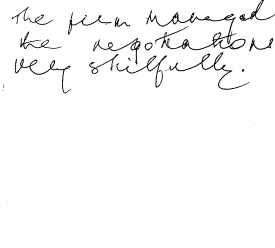 The firm managed
the negotiations
very skilfully.